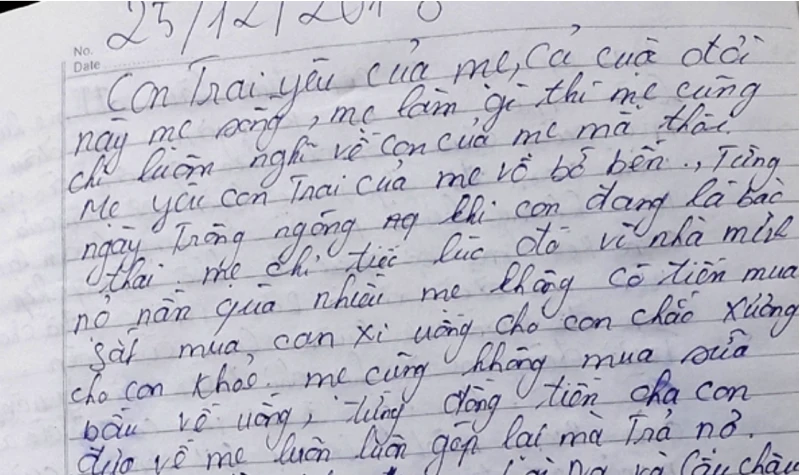 No.
Date
25/12/201
Con Trai yêu của mẹ, Cả cuộc đời
này mẹ sống, mẹ làm gì thì mẹ cũng
chỉ luôn nghĩ về con của mẹ mà thôi.
Mẹ yêu con Trai của mẹ vô bờ bến., Từng
ngày Trông ngóng khi con đang là bào
thai mẹ chỉ tiếc lúc đó vì nhà mình
nợ nần quá nhiều mẹ không có tiền mua
sắt mua can xi uống cho con chắc xương
cho con khoẻ. mẹ cũng không mua sữa
bầu về uống, từng đồng tiền cha con
đưa về mẹ luôn luôn góp lại mà Trả nợ.